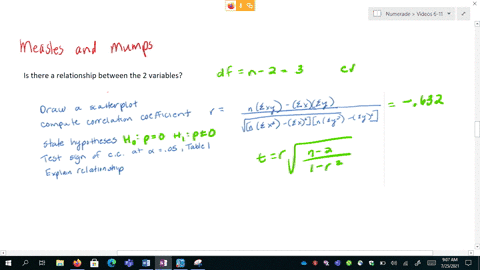 Numerade > Videos 6-11
Measles and Mumps
Is there a relationship between the 2 variables?
df = n - 2 = 3 cv
Draw a scatterplot
compute correlation coefficient r = n(Σxy) - (Σx)(Σy) / √[n(Σx²) - (Σx)²][n(Σy²) - (Σy)²] = -.632
state hypotheses H₀: ρ=0 H₁: ρ≠0
Test sign of c.c. at α = .05, Table I
Explain relationship
t = r √(n-2 / 1-r²)
9:07 AM
7/25/2021